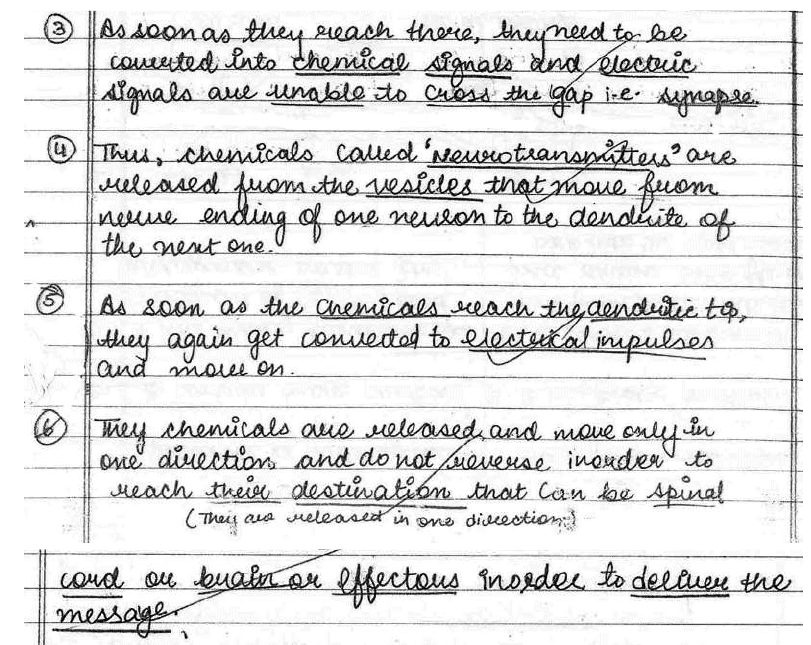 ③ As soon as they reach there, they need to be
converted into chemical signals and electric
signals are unable to cross the gap i.e. synapse.
④ Thus, chemicals called 'neurotransmitters' are
released from the vesicles that move from
nerve ending of one neuron to the dendrite of
the next one.
⑤ As soon as the chemicals reach the dendritic tip,
they again get converted to electrical impulses
and move on.
⑥ They chemicals are released and move only in
one direction and do not reverse inorder to
reach their destination that can be spinal
(They are released in one direction)
cord or brain or effectors inorder to deliver the
message.